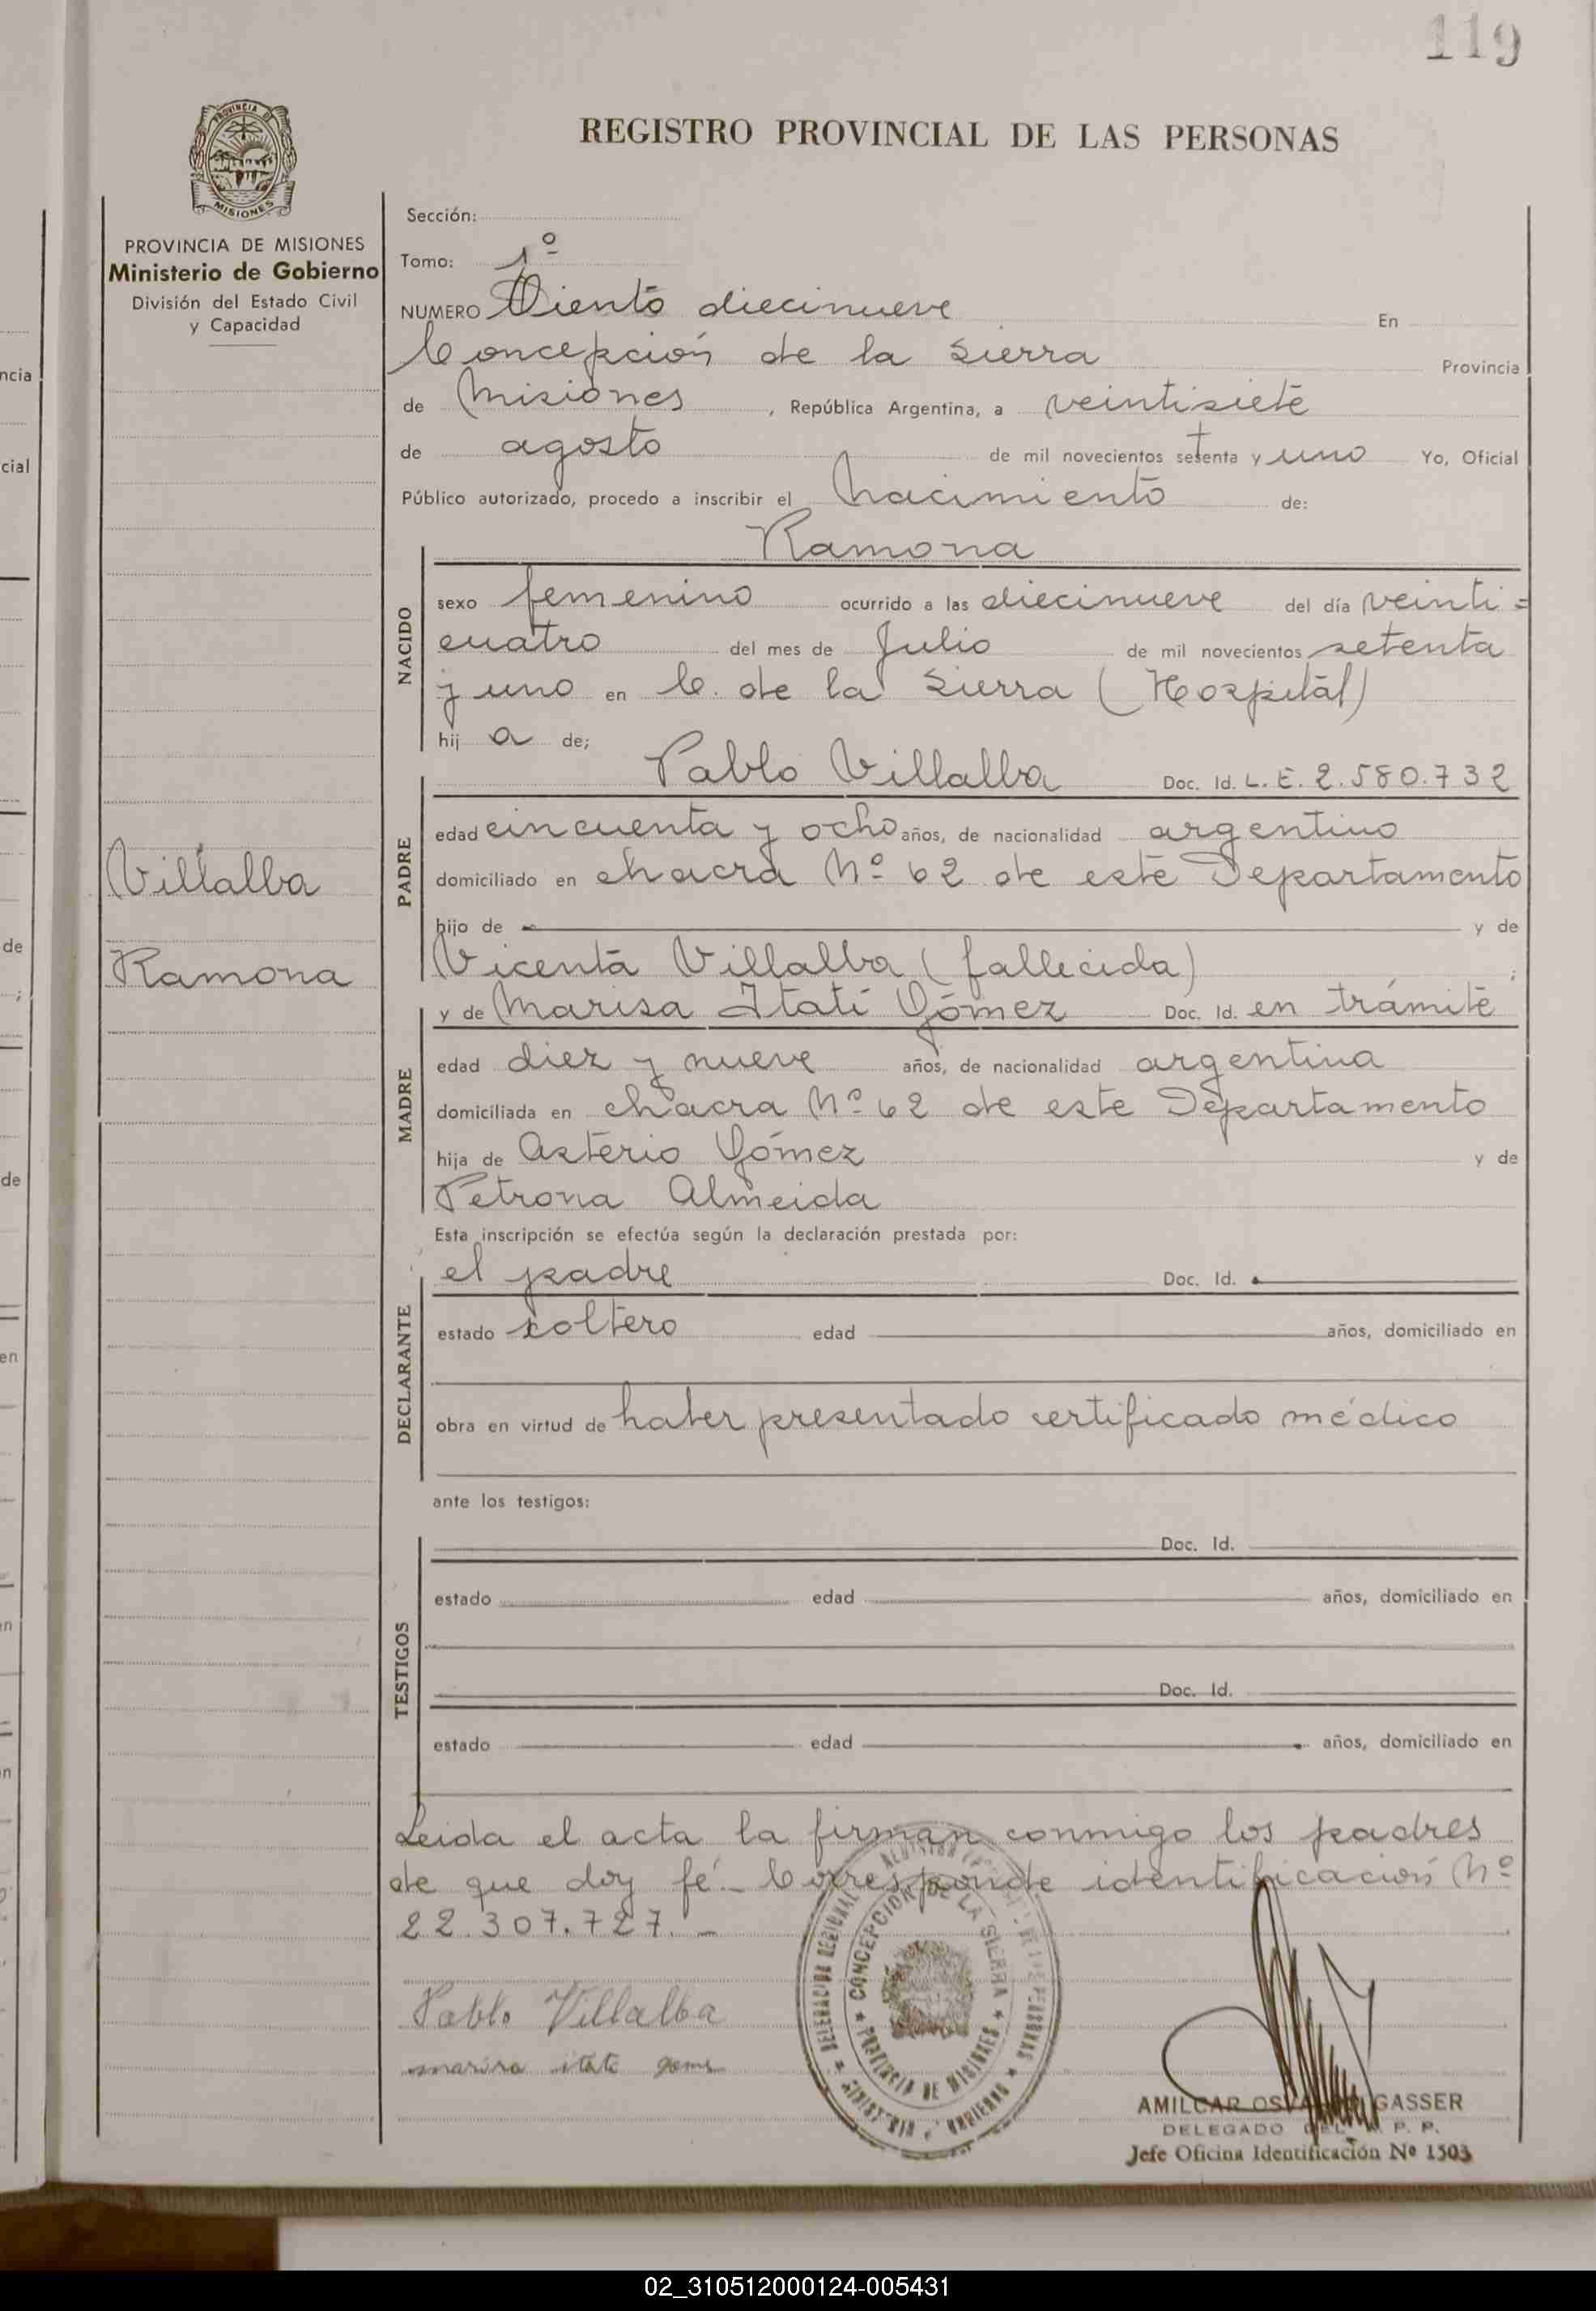 119
PROVINCIA DE
MISIONES
PROVINCIA DE MISIONES
Ministerio de Gobierno
División del Estado Civil
y Capacidad
Villalba
Ramona
REGISTRO PROVINCIAL DE LAS PERSONAS
Sección:
Tomo: 1º
NUMERO Ciento diecinueve En
Concepción de la Sierra Provincia
de Misiones, República Argentina, a veintisiete
de agosto de mil novecientos setenta y uno Yo, Oficial
Público autorizado, procedo a inscribir el Nacimiento de:
Ramona
NACIDO
sexo femenino ocurrido a las diecinueve del día veinti=
cuatro del mes de Julio de mil novecientos setenta
y uno en C. de la Sierra (Hospital)
hij a de;
Pablo Villalba Doc. Id. L. E. 2.580.732
PADRE
edad cincuenta y ocho años, de nacionalidad argentino
domiciliado en chacra Nº 62 de este Departamento
hijo de y de
Vicenta Villalba (fallecida) ;
y de Marisa Itatí Gómez Doc. Id. en trámite
MADRE
edad diez y nueve años, de nacionalidad argentina
domiciliada en chacra Nº 62 de este Departamento
hija de Asterio Gómez y de
Petrona Almeida
Esta inscripción se efectúa según la declaración prestada por:
el padre Doc. Id.
DECLARANTE
estado soltero edad años, domiciliado en
obra en virtud de haber presentado certificado médico
ante los testigos:
Doc. Id.
TESTIGOS
estado edad años, domiciliado en
Doc. Id.
estado edad años, domiciliado en
Leida el acta la firman conmigo los padres
de que doy fé.- Corresponde identificación Nº
22.307.727.-
Pablo Villalba
marisa itati gome
CONCEPCION DE LA SIERRA
PROVINCIA DE MISIONES
AMILCAR GASSER
DELEGADO DEL R. P. P.
Jefe Oficina Identificación Nº 1503
ncia
cial
de
;
de
en
en
en
02_310512000124-005431